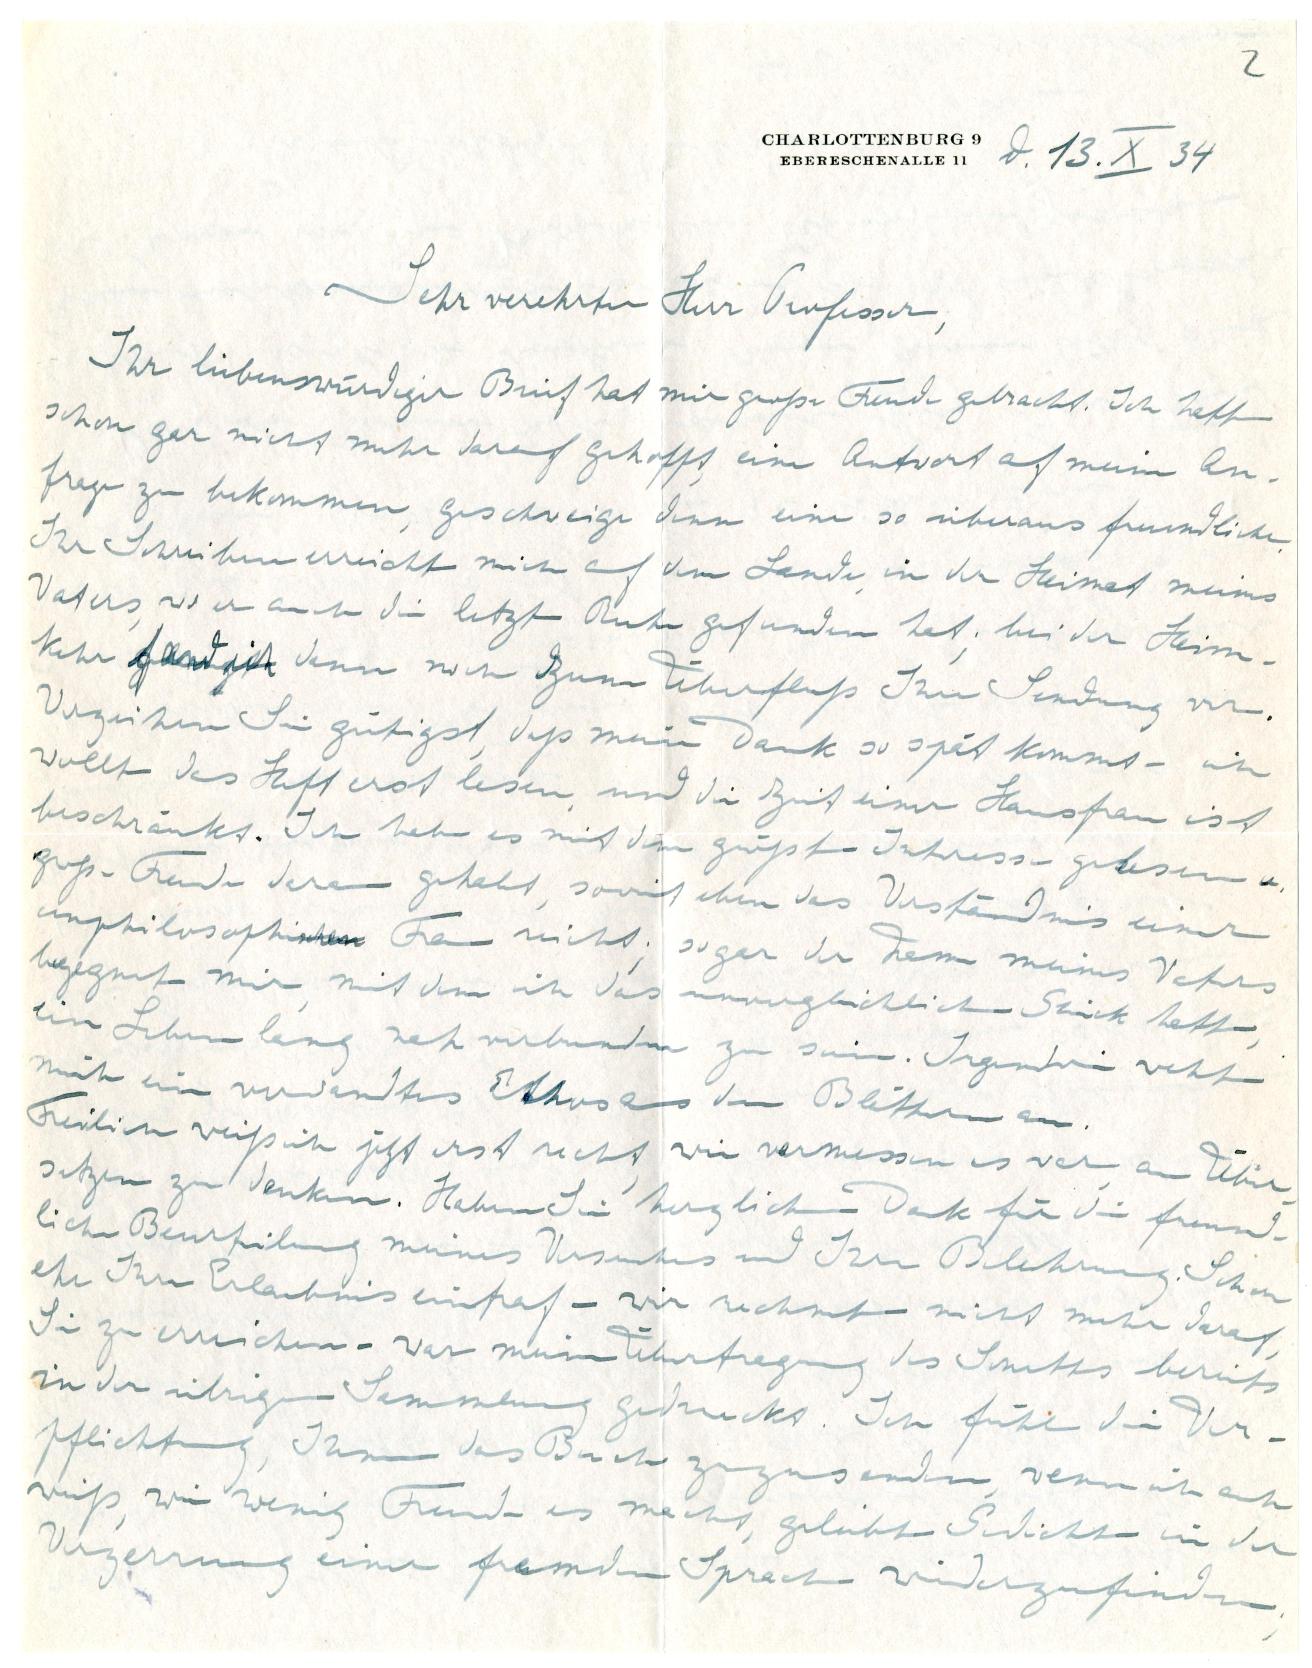 2
CHARLOTTENBURG 9
EBERESCHENALLE 11 d. 13. X 34
Sehr verehrter Herr Professor,
Ihr liebenswürdiger Brief hat mir große Freude gebracht. Ich hatte
schon gar nicht mehr darauf gehofft, eine Antwort auf meine An-
frage zu bekommen, geschweige denn eine so überaus freundliche.
Ihr Schreiben erreichte mich auf dem Lande, in der Heimat meines
Vaters, wo er auch die letzte Ruhe gefunden hat; bei der Heim-
kehr fand ich dann noch zum Überfluß Ihre Sendung vor.
Verzeihen Sie gütigst, daß mein Dank so spät kommt – ich
wollte das Heft erst lesen, und die Zeit einer Hausfrau ist
beschränkt. Ich habe es mit dem größten Interesse gelesen u.
große Freude daran gehabt, soweit eben das Verständnis einer
unphilosophischen Frau reicht; sogar der Name meines Vaters
begegnet mir, mit dem ich das unvergleichliche Glück hatte,
ein Leben lang nah verbunden zu sein. Irgendwie weht
mich ein verwandtes Ethos aus den Blättern an.
Freilich weiß ich jetzt erst recht, wie vermessen es war, an Über-
setzen zu denken. Haben Sie herzlichen Dank für die freund-
liche Beurteilung meines Versuches und Ihre Belehrung. Schon
ehe Ihre Erlaubnis eintraf – wir rechneten nicht mehr darauf,
Sie zu erreichen – war meine Übertragung des Sonetts bereits
in der übrigen Sammlung gedruckt. Ich fühle die Ver-
pflichtung, Ihnen das Buch zuzusenden, wenn ich auch
weiß, wie wenig Freude es macht, geliebte Gedichte in der
Verzerrung einer fremden Sprache wiederzufinden;